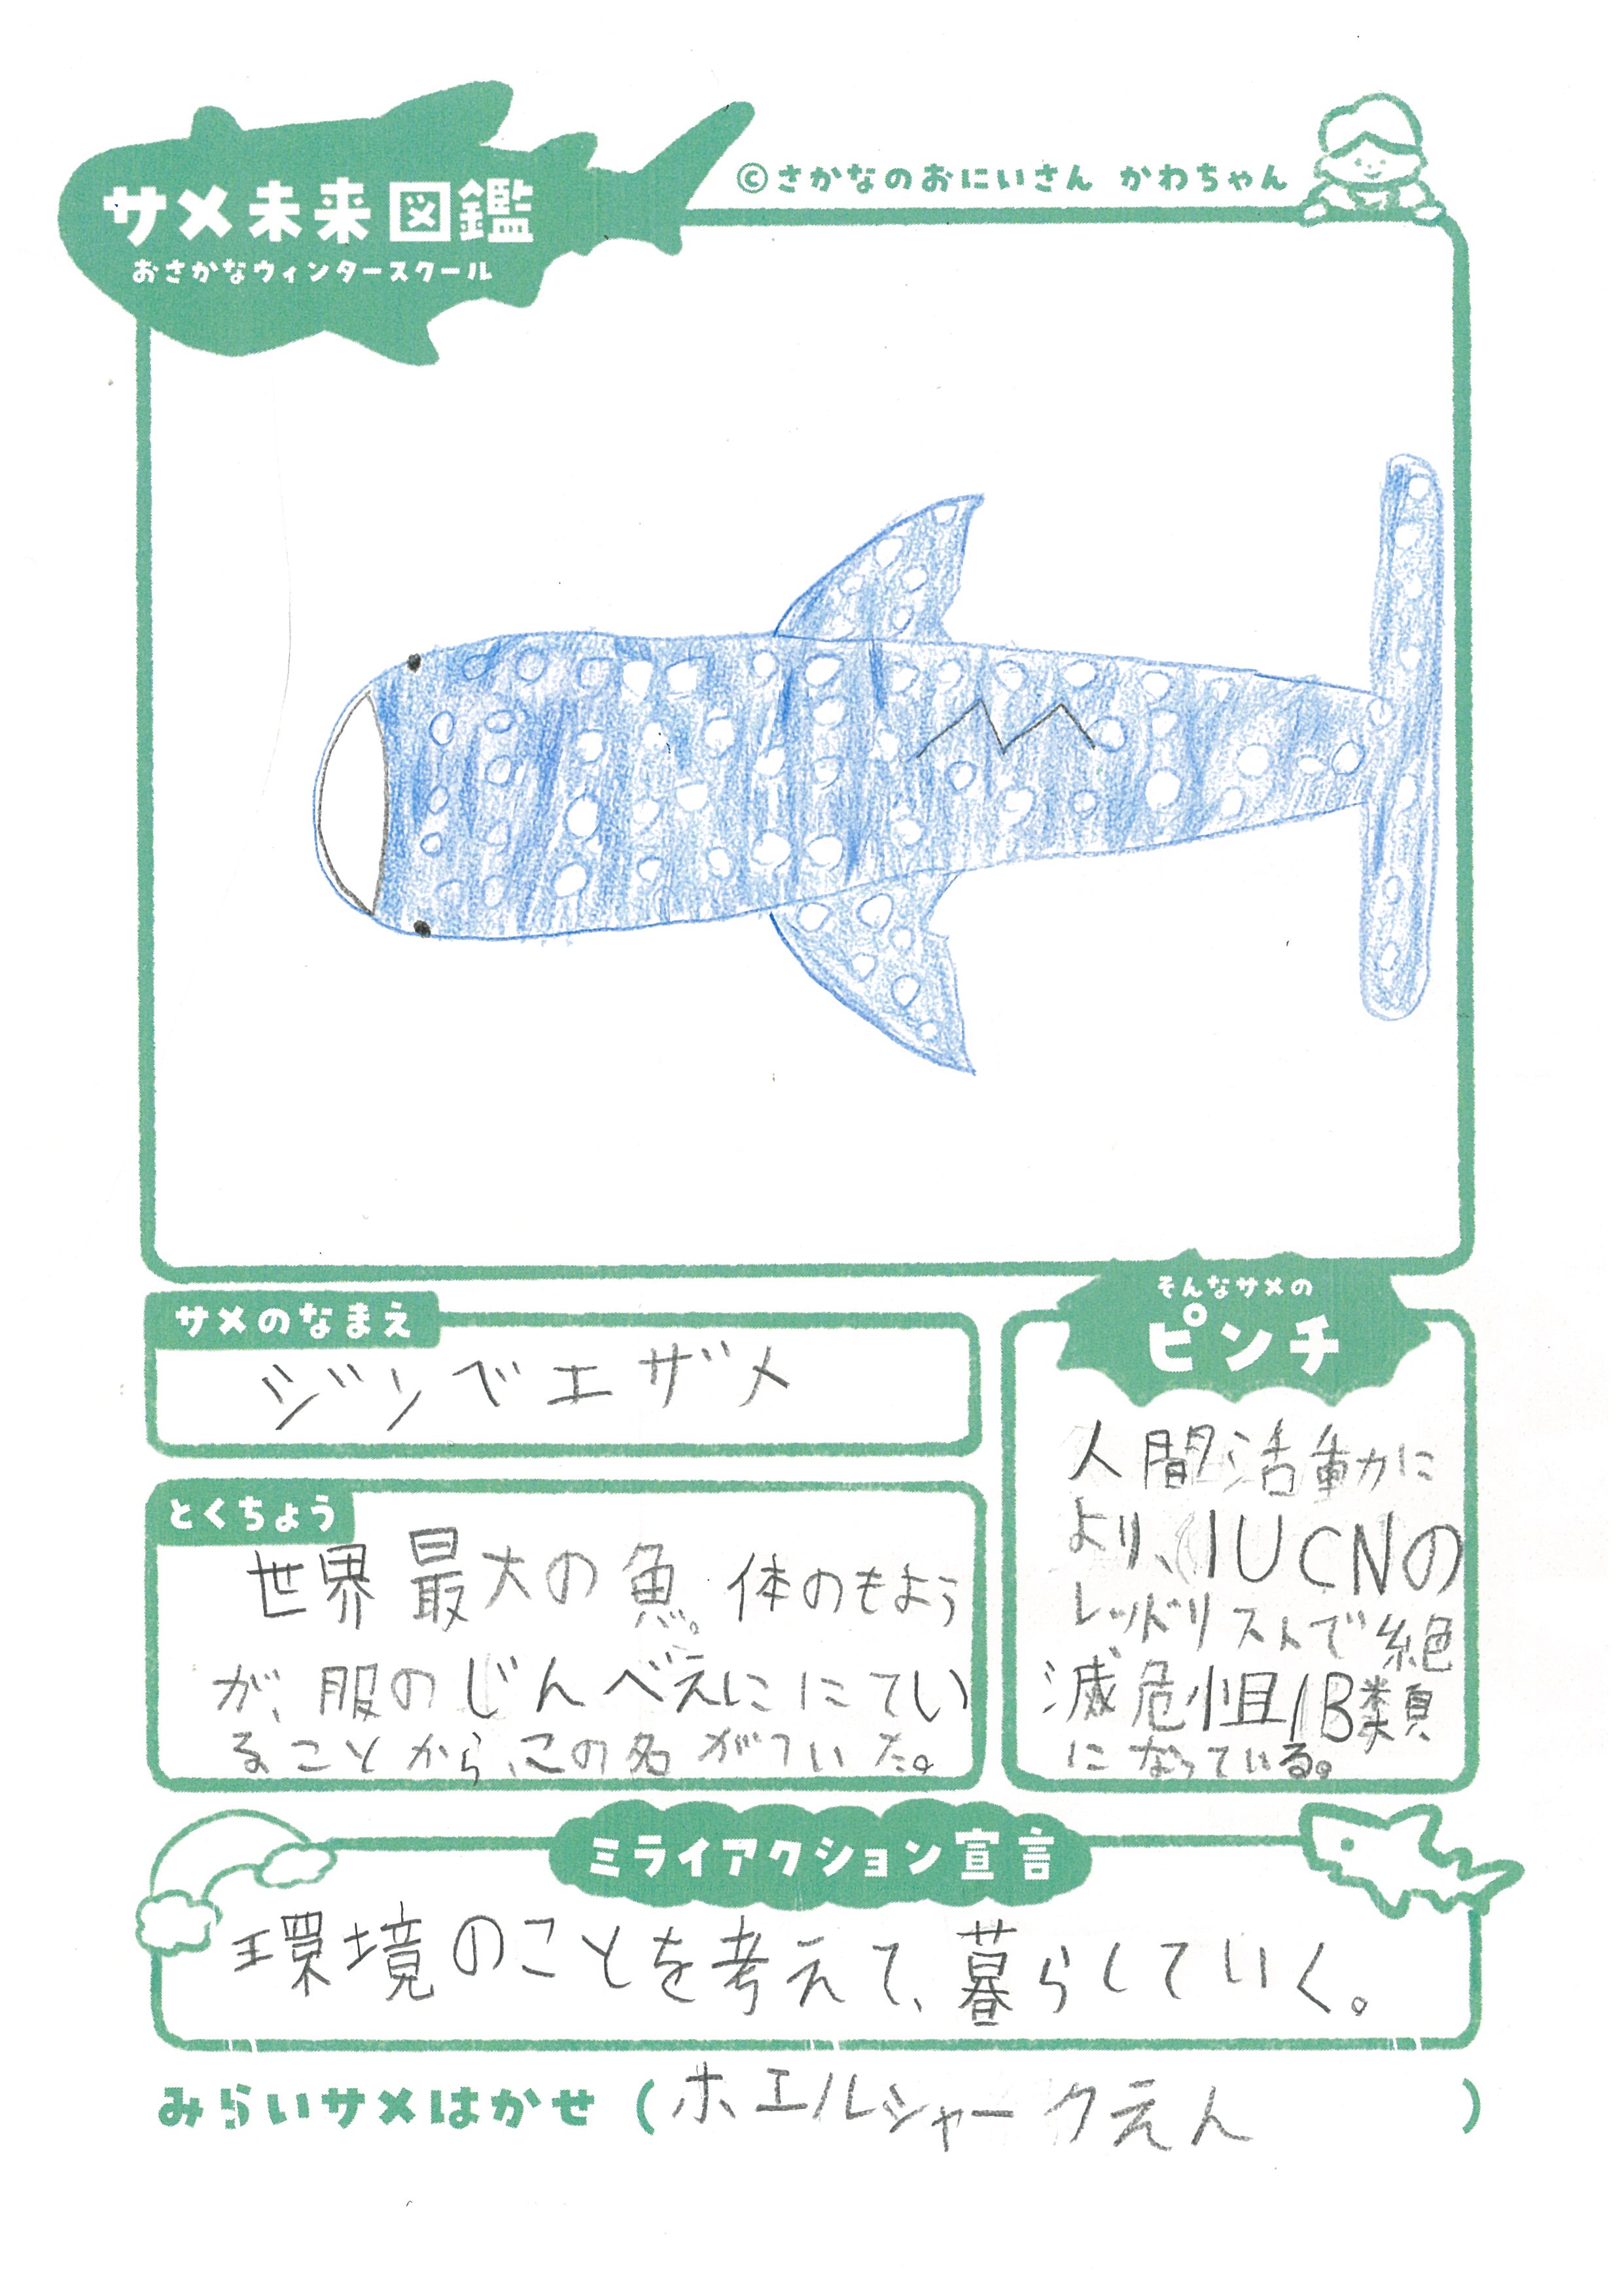 サメ未来図鑑
おさかなウィンタースクール
©さかなのおにいさん かわちゃん
サメのなまえ
ジンベエザメ
とくちょう
世界最大の魚。体のもよう
が、服のじんべえににてい
ることから、この名がついた。
そんなサメの
ピンチ
人間活動に
より、IUCNの
レッドリストで絶
滅危惧IB類
になっている。
ミライアクション宣言
環境のことを考えて、暮らしていく。
みらいサメはかせ (ホエルシャークえん)